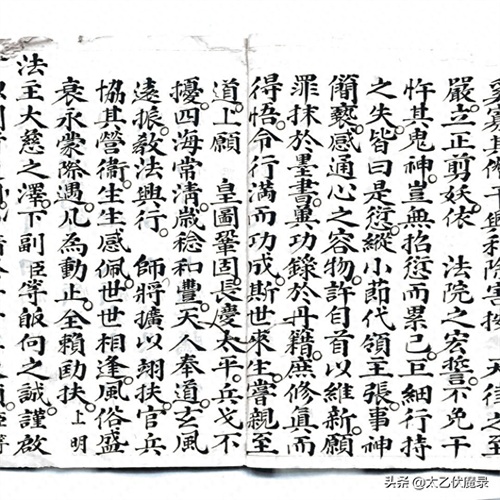 天律之至
嚴立正剪妖依　法院之宏誓不免干
忤其鬼神豈無招愆而累己旦細行持
之失皆曰是愆縱小節代領王張事神
爾褻感通心之容物許自首以維新願
罪抹於墨書異功錄於丹籍庶修真而
得悟令行滿而功成斯世來生嘗親至
道上願　皇圖鞏固長慶太平兵戈不
擾四海常清歲稔和豐天人奉道玄風
遠振教法興行　師將擴以翊扶官兵
協其營衛生生感佩世世相逢風俗盛
衰永蒙際遇凡為動止全賴劻扶上明
法王大慈之澤下副臣等皈向之誠謹啟
头条 @太乙伏魔录